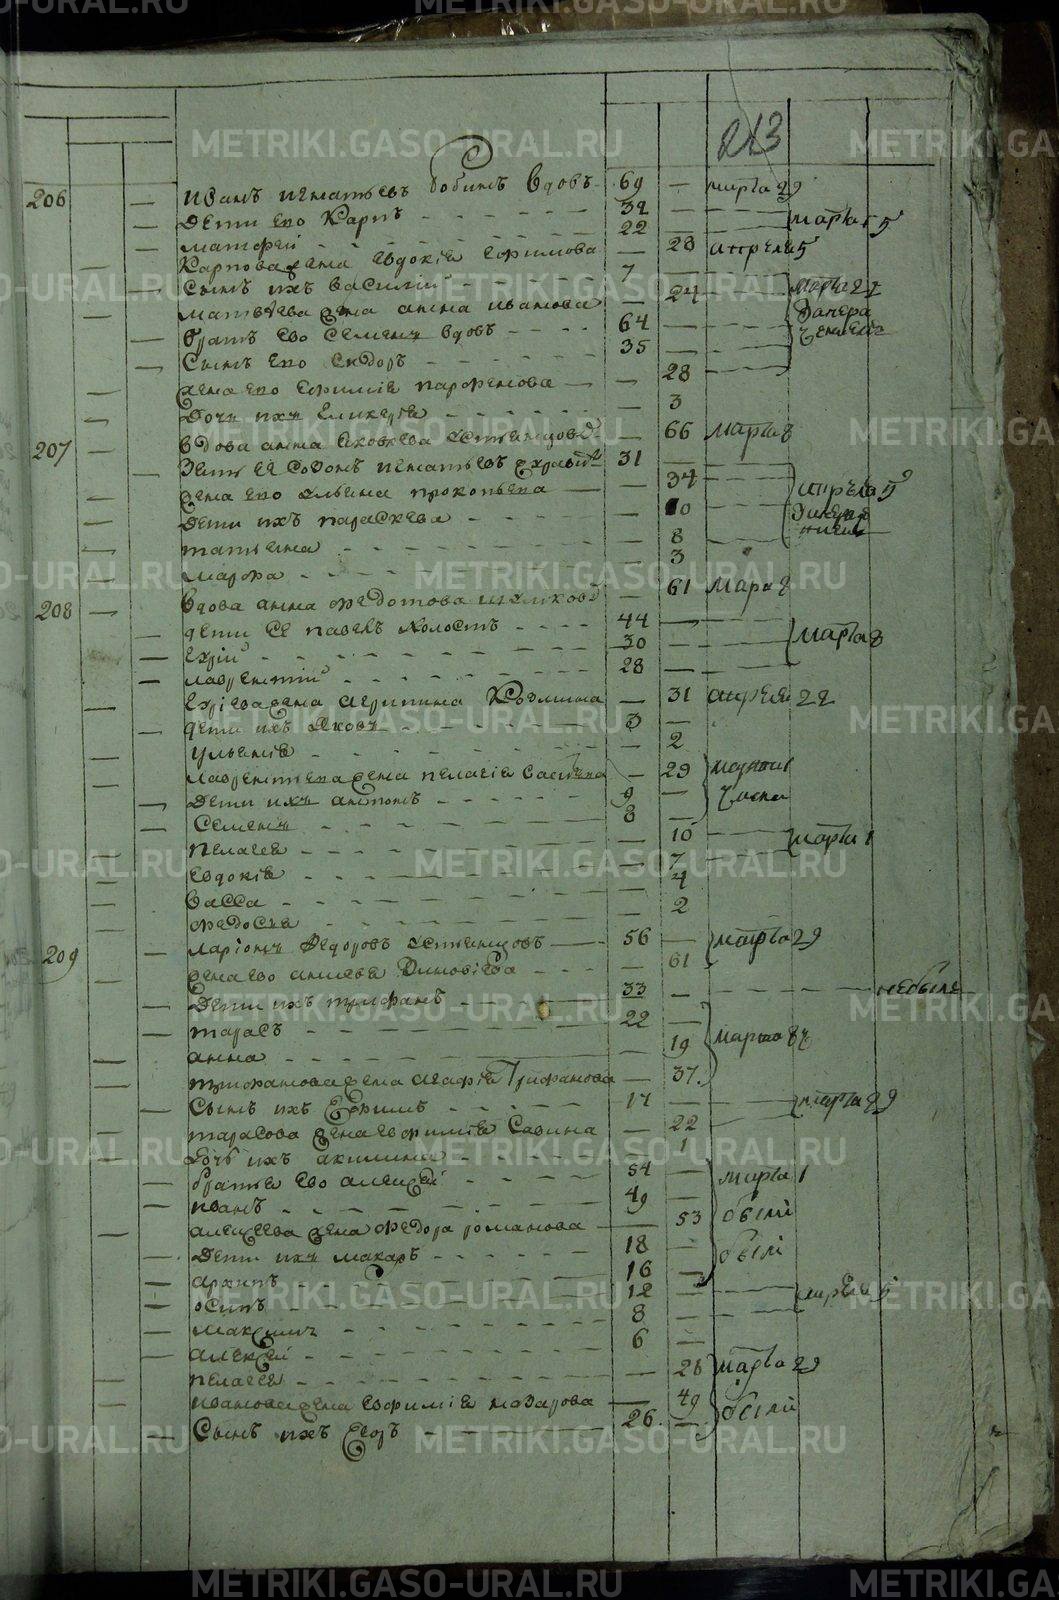 213
206 Иванъ Игнатьевъ Бобинъ вдовъ 69 марта 29
Дети ево Карпъ 32 марта 15
Матфей 22
Карпова жена Евдокiя Ефимова 23 апреля 5
Сынъ ихъ Василий 7 марта
Матвеева жена Анна Иванова 24
братъ ево Семенъ вдовъ 64
Сынъ ево Сидоръ 35
жена ево Ефимiя Парфенова 28
Дочь ихъ Гликерiя 3
207 вдова Анна Яковлева 66 марта 8
Зять ея Софонъ Игнатьевъ 31
жена ево Ульяна Прокопьева 34 апреля 5
Дети ихъ Параскева 10
Татьяна 8
Марфа 3
208 вдова Анна Федотова 61 марта 8
дети ея Павелъ холостъ 44 марта 8
30
Лаврентий 28
жена Агрипина Козмина 31 апреля 22
дети ихъ Яковъ 3
Ульянiя 2
Лаврентьева жена Пелагiя 29
Дети ихъ Антонъ 9
Семенъ 8
Пелагея 10 марта 1
Евдокiя 7
Васса 4
Федосья 2
209 Ларiонъ Федоровъ Устьянцовъ 56 марта 29
жена ево Анисья Зиновiева 61
Дети ихъ Трифанъ 33 небыле
Тарасъ 22
Анна 19 марта
Трифанова жена Агафiя Трифанова 37
Сынъ ихъ Ефимъ 14 марта 29
Тарасова жена Евфимiя Савина 22
Дочь ихъ Акилина 1
братья ево Алексей 54 марта 1
Иванъ 49
Алексеева жена Федора Романова 53 были
Дети ихъ Макаръ 18 были
Архипъ 16
Осипъ 12 апреля 5
Максимъ 8
Алексей 6
Пелагея 28 марта 29
Иванова жена Евфимiя Назарова 49 были
Сынъ ихъ Егоръ 26
METRIKI.GASO-URAL.RU